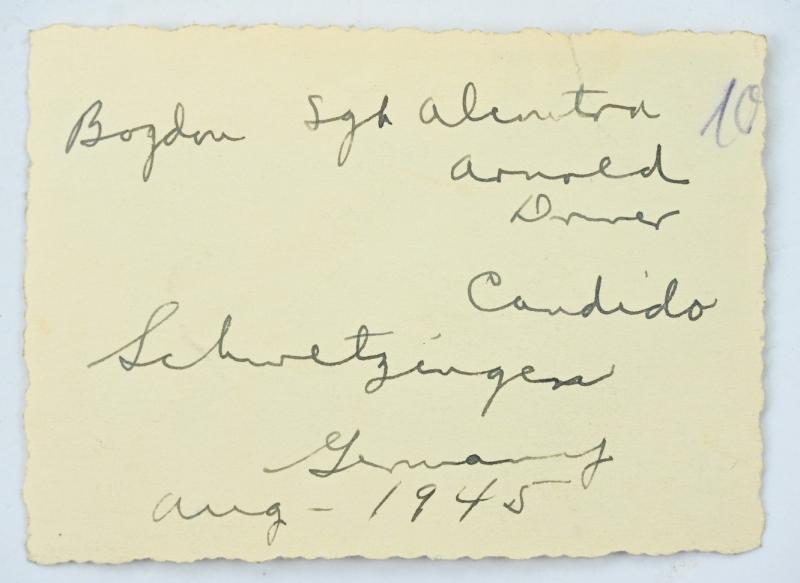 Bogdon Sgt Alcontra 10
Arnold
Driver
Candido
Schwetzingen
Germany
Aug - 1945